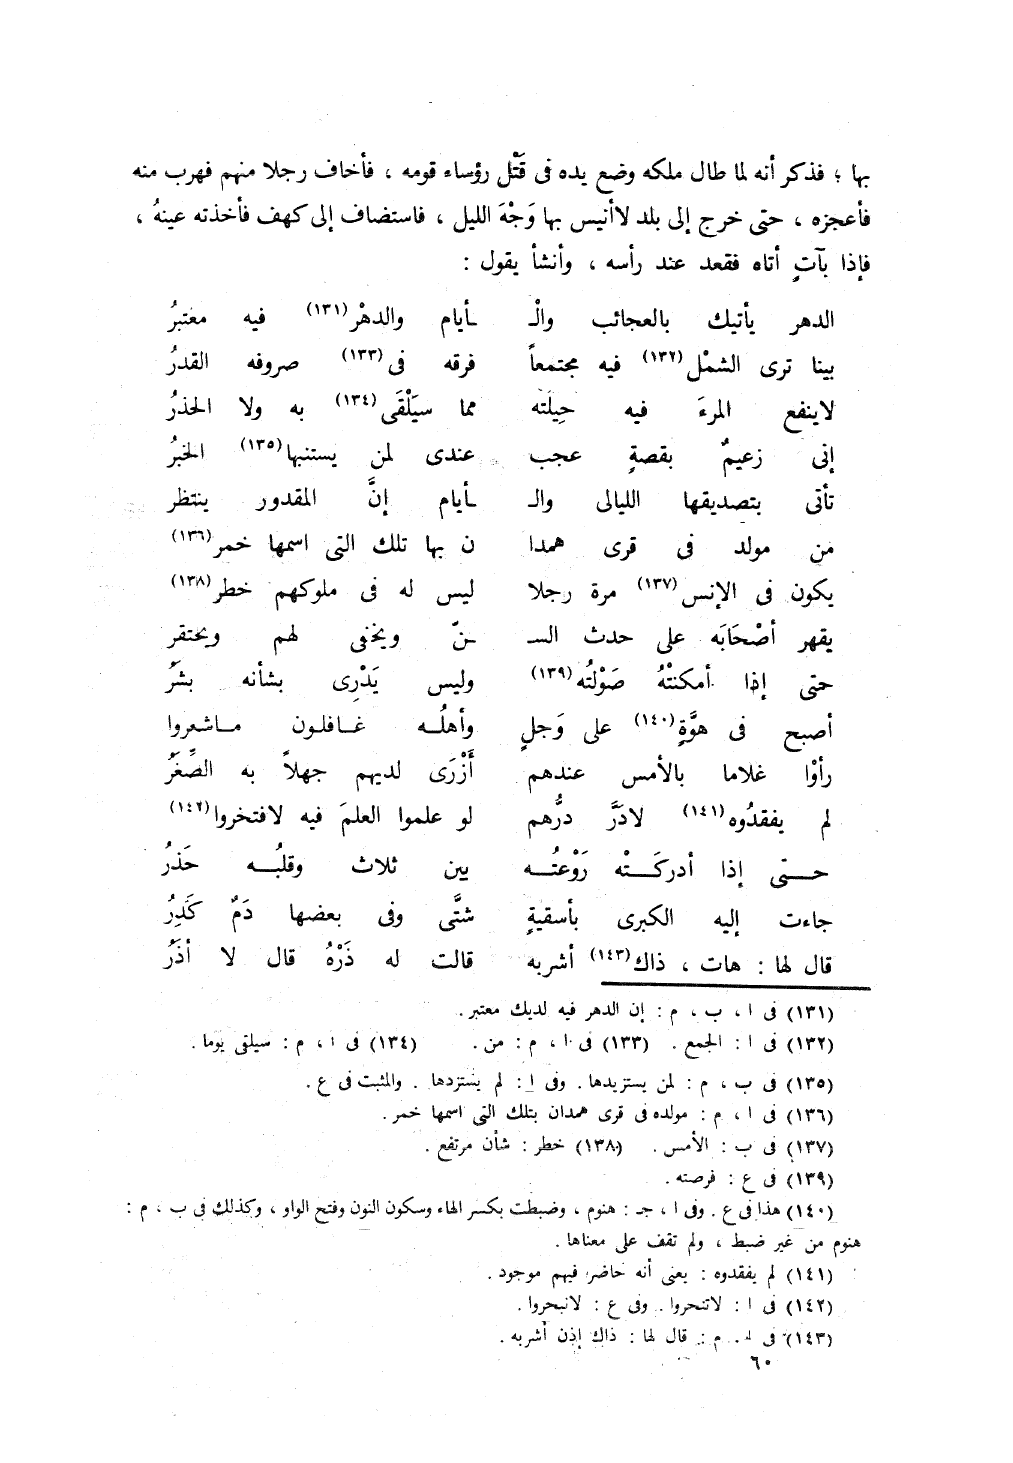 بها ؛ فذكر أنه لما طال ملكه وضع يده فى قَتْل رؤساء قومه ، فأخاف رجلا منهم فهرب منه
فأعجزه ، حتى خرج إلى بلد لاأنيس بها وَجْهَ الليل ، فاستضاف إلى كهف فأخذته عينهُ ،
فإذا بآتٍ أتاه فقعد عند رأسه ، وأنشأ يقول :
الدهر يأتيك بالعجائب والْـ ـأيام والدهْر(١٣١) فيه معتبرُ
بينا ترى الشمْل(١٣٢) فيه مجتمعاً فرقه فى(١٣٣) صروفه القدرُ
لاينفع المرءَ فيه حِيلَته مما سيَلْقَى(١٣٤) به ولا الحذرُ
إنى زعيمٌ بقصةٍ عجب عندى لمن يستنبها(١٣٥) الخبرُ
تأتى بتصديقها الليالى والـ ـأيام إنَّ المقدور ينتظر
من مولد فى قرى همدا ن بها تلك التى اسمها خمر(١٣٦)
يكون فى الإنس(١٣٧) مرة رجلا ليس له فى ملوكهم خطر(١٣٨)
يقهر أصْحَابَه على حدث السـ ـنّ ويخفى لهم ويحتقر
حتى إذا أمكنتْهُ صَوْلتُه(١٣٩) وليس يَدْرِى بشأنه بشرُ
أصبح فى هوَّةٍ(١٤٠) على وَجلٍ وأهلُـه غـافلـون مـاشعروا
رأوْا غلاما بالأمس عندهم أزْرَى لديهم جهلاً به الصِّغَرُ
لم يفقدُوه(١٤١) لادَرَّ درُّهم لو علموا العلمَ فيه لافتخروا(١٤٢)
حـتى إذا أدركَـتْه رَوْعتُـه بين ثلاث وقلبُـه حَذرُ
جاءت إليه الكبرى بأسقيةٍ شتَّى وفى بعضها دَمٌ كَدِرُ
قال لها : هات ، ذاك(١٤٣) أشربه قالت له ذَرْهُ قال لا أذَرُ
(١٣١) فى ا ، ب ، م : إن الدهر فيه لديك معتبر .
(١٣٢) فى ا : الجمع . (١٣٣) فى ا ، م : من . (١٣٤) فى ا ، م : سيلقى يوما .
(١٣٥) فى ب ، م : لمن يستزيدها . وفى ا : لم يستزدها . والمثبت فى ع .
(١٣٦) فى ا ، م : مولده فى قرى همدان بتلك التى اسمها خمر .
(١٣٧) فى ب : الأمس . (١٣٨) خطر : شأن مرتفع .
(١٣٩) فى ع : فرصته .
(١٤٠) هذا فى ع . وفى ا ، جـ : هنوم ، وضبطت بكسر الهاء وسكون النون وفتح الواو ، وكذلك فى ب ، م :
هنوم من غير ضبط ، ولم تقف على معناها .
(١٤١) لم يفقدوه : يعنى أنه حاضر فيهم موجود .
(١٤٢) فى ا : لاتنحروا . وفى ع : لانبحروا .
(١٤٣) فى م : قال لها : ذاك إذن أشربه .
٦٠